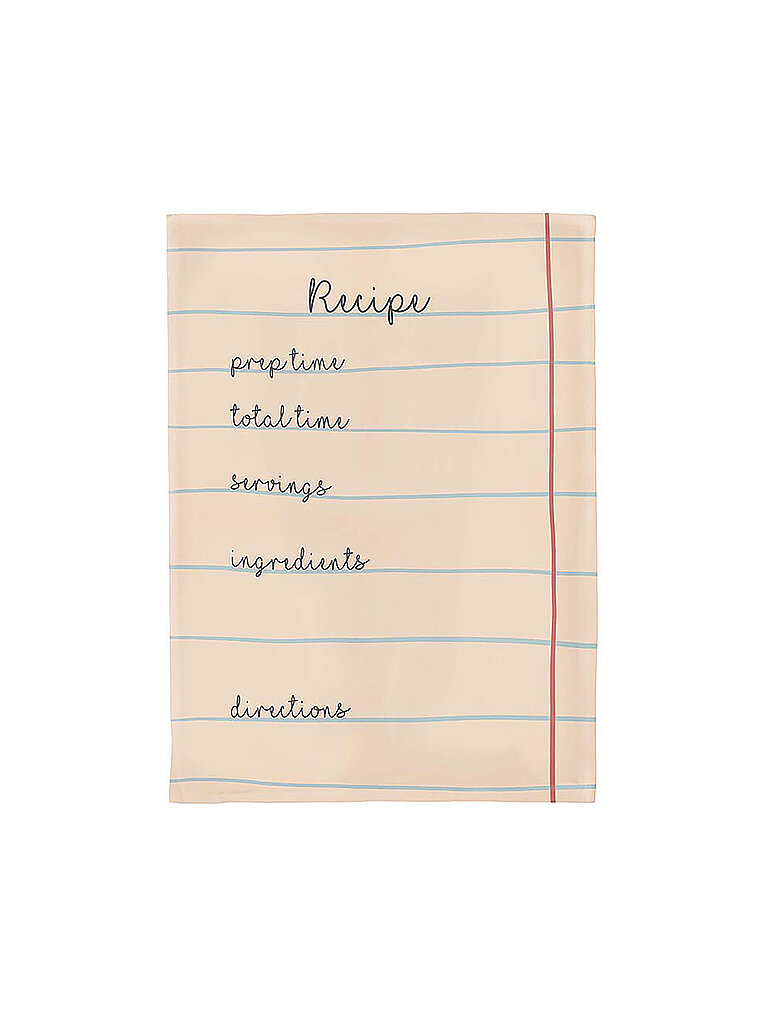 Recipe
prep time
total time
servings
ingredients
directions